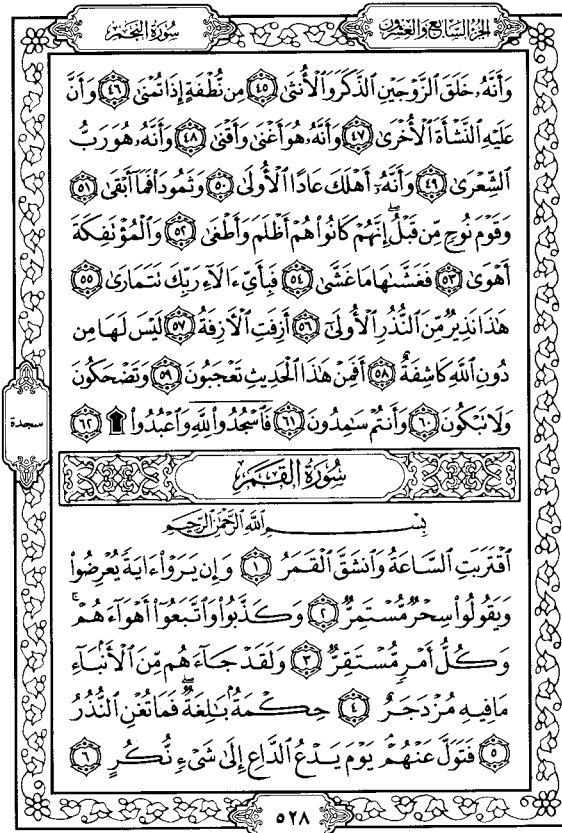 الجزء السابع والعشرون
سورة النجم
وَأَنَّهُۥ خَلَقَ ٱلزَّوْجَيْنِ ٱلذَّكَرَ وَٱلْأُنثَىٰ ٤٥ مِن نُّطْفَةٍ إِذَا تُمْنَىٰ ٤٦ وَأَنَّ
عَلَيْهِ ٱلنَّشْأَةَ ٱلْأُخْرَىٰ ٤٧ وَأَنَّهُۥ هُوَ أَغْنَىٰ وَأَقْنَىٰ ٤٨ وَأَنَّهُۥ هُوَ رَبُّ
ٱلشِّعْرَىٰ ٤٩ وَأَنَّهُۥٓ أَهْلَكَ عَادًا ٱلْأُولَىٰ ٥٠ وَثَمُودَا۟ فَمَآ أَبْقَىٰ ٥١
وَقَوْمَ نُوحٍ مِّن قَبْلُ ۖ إِنَّهُمْ كَانُوا۟ هُمْ أَظْلَمَ وَأَطْغَىٰ ٥٢ وَٱلْمُؤْتَفِكَةَ
أَهْوَىٰ ٥٣ فَغَشَّىٰهَا مَا غَشَّىٰ ٥٤ فَبِأَىِّ ءَالَآءِ رَبِّكَ تَتَمَارَىٰ ٥٥
هَٰذَا نَذِيرٌ مِّنَ ٱلنُّذُرِ ٱلْأُولَىٰٓ ٥٦ أَزِفَتِ ٱلْـَٔازِفَةُ ٥٧ لَيْسَ لَهَا مِن
دُونِ ٱللَّهِ كَاشِفَةٌ ٥٨ أَفَمِنْ هَٰذَا ٱلْحَدِيثِ تَعْجَبُونَ ٥٩ وَتَضْحَكُونَ
وَلَا تَبْكُونَ ٦٠ وَأَنتُمْ سَٰمِدُونَ ٦١ فَٱسْجُدُوا۟ لِلَّهِ وَٱعْبُدُوا۟ ۩ ٦٢
سجدة
سورة القمر
بِسْمِ ٱللَّهِ ٱلرَّحْمَٰنِ ٱلرَّحِيمِ
ٱقْتَرَبَتِ ٱلسَّاعَةُ وَٱنشَقَّ ٱلْقَمَرُ ١ وَإِن يَرَوْا۟ ءَايَةً يُعْرِضُوا۟
وَيَقُولُوا۟ سِحْرٌ مُّسْتَمِرٌّ ٢ وَكَذَّبُوا۟ وَٱتَّبَعُوٓا۟ أَهْوَآءَهُمْ ۚ
وَكُلُّ أَمْرٍ مُّسْتَقِرٌّ ٣ وَلَقَدْ جَآءَهُم مِّنَ ٱلْأَنۢبَآءِ
مَا فِيهِ مُزْدَجَرٌ ٤ حِكْمَةٌۢ بَٰلِغَةٌ ۖ فَمَا تُغْنِ ٱلنُّذُرُ
٥ فَتَوَلَّ عَنْهُمْ ۘ يَوْمَ يَدْعُ ٱلدَّاعِ إِلَىٰ شَىْءٍ نُّكُرٍ ٦
٥٢٨